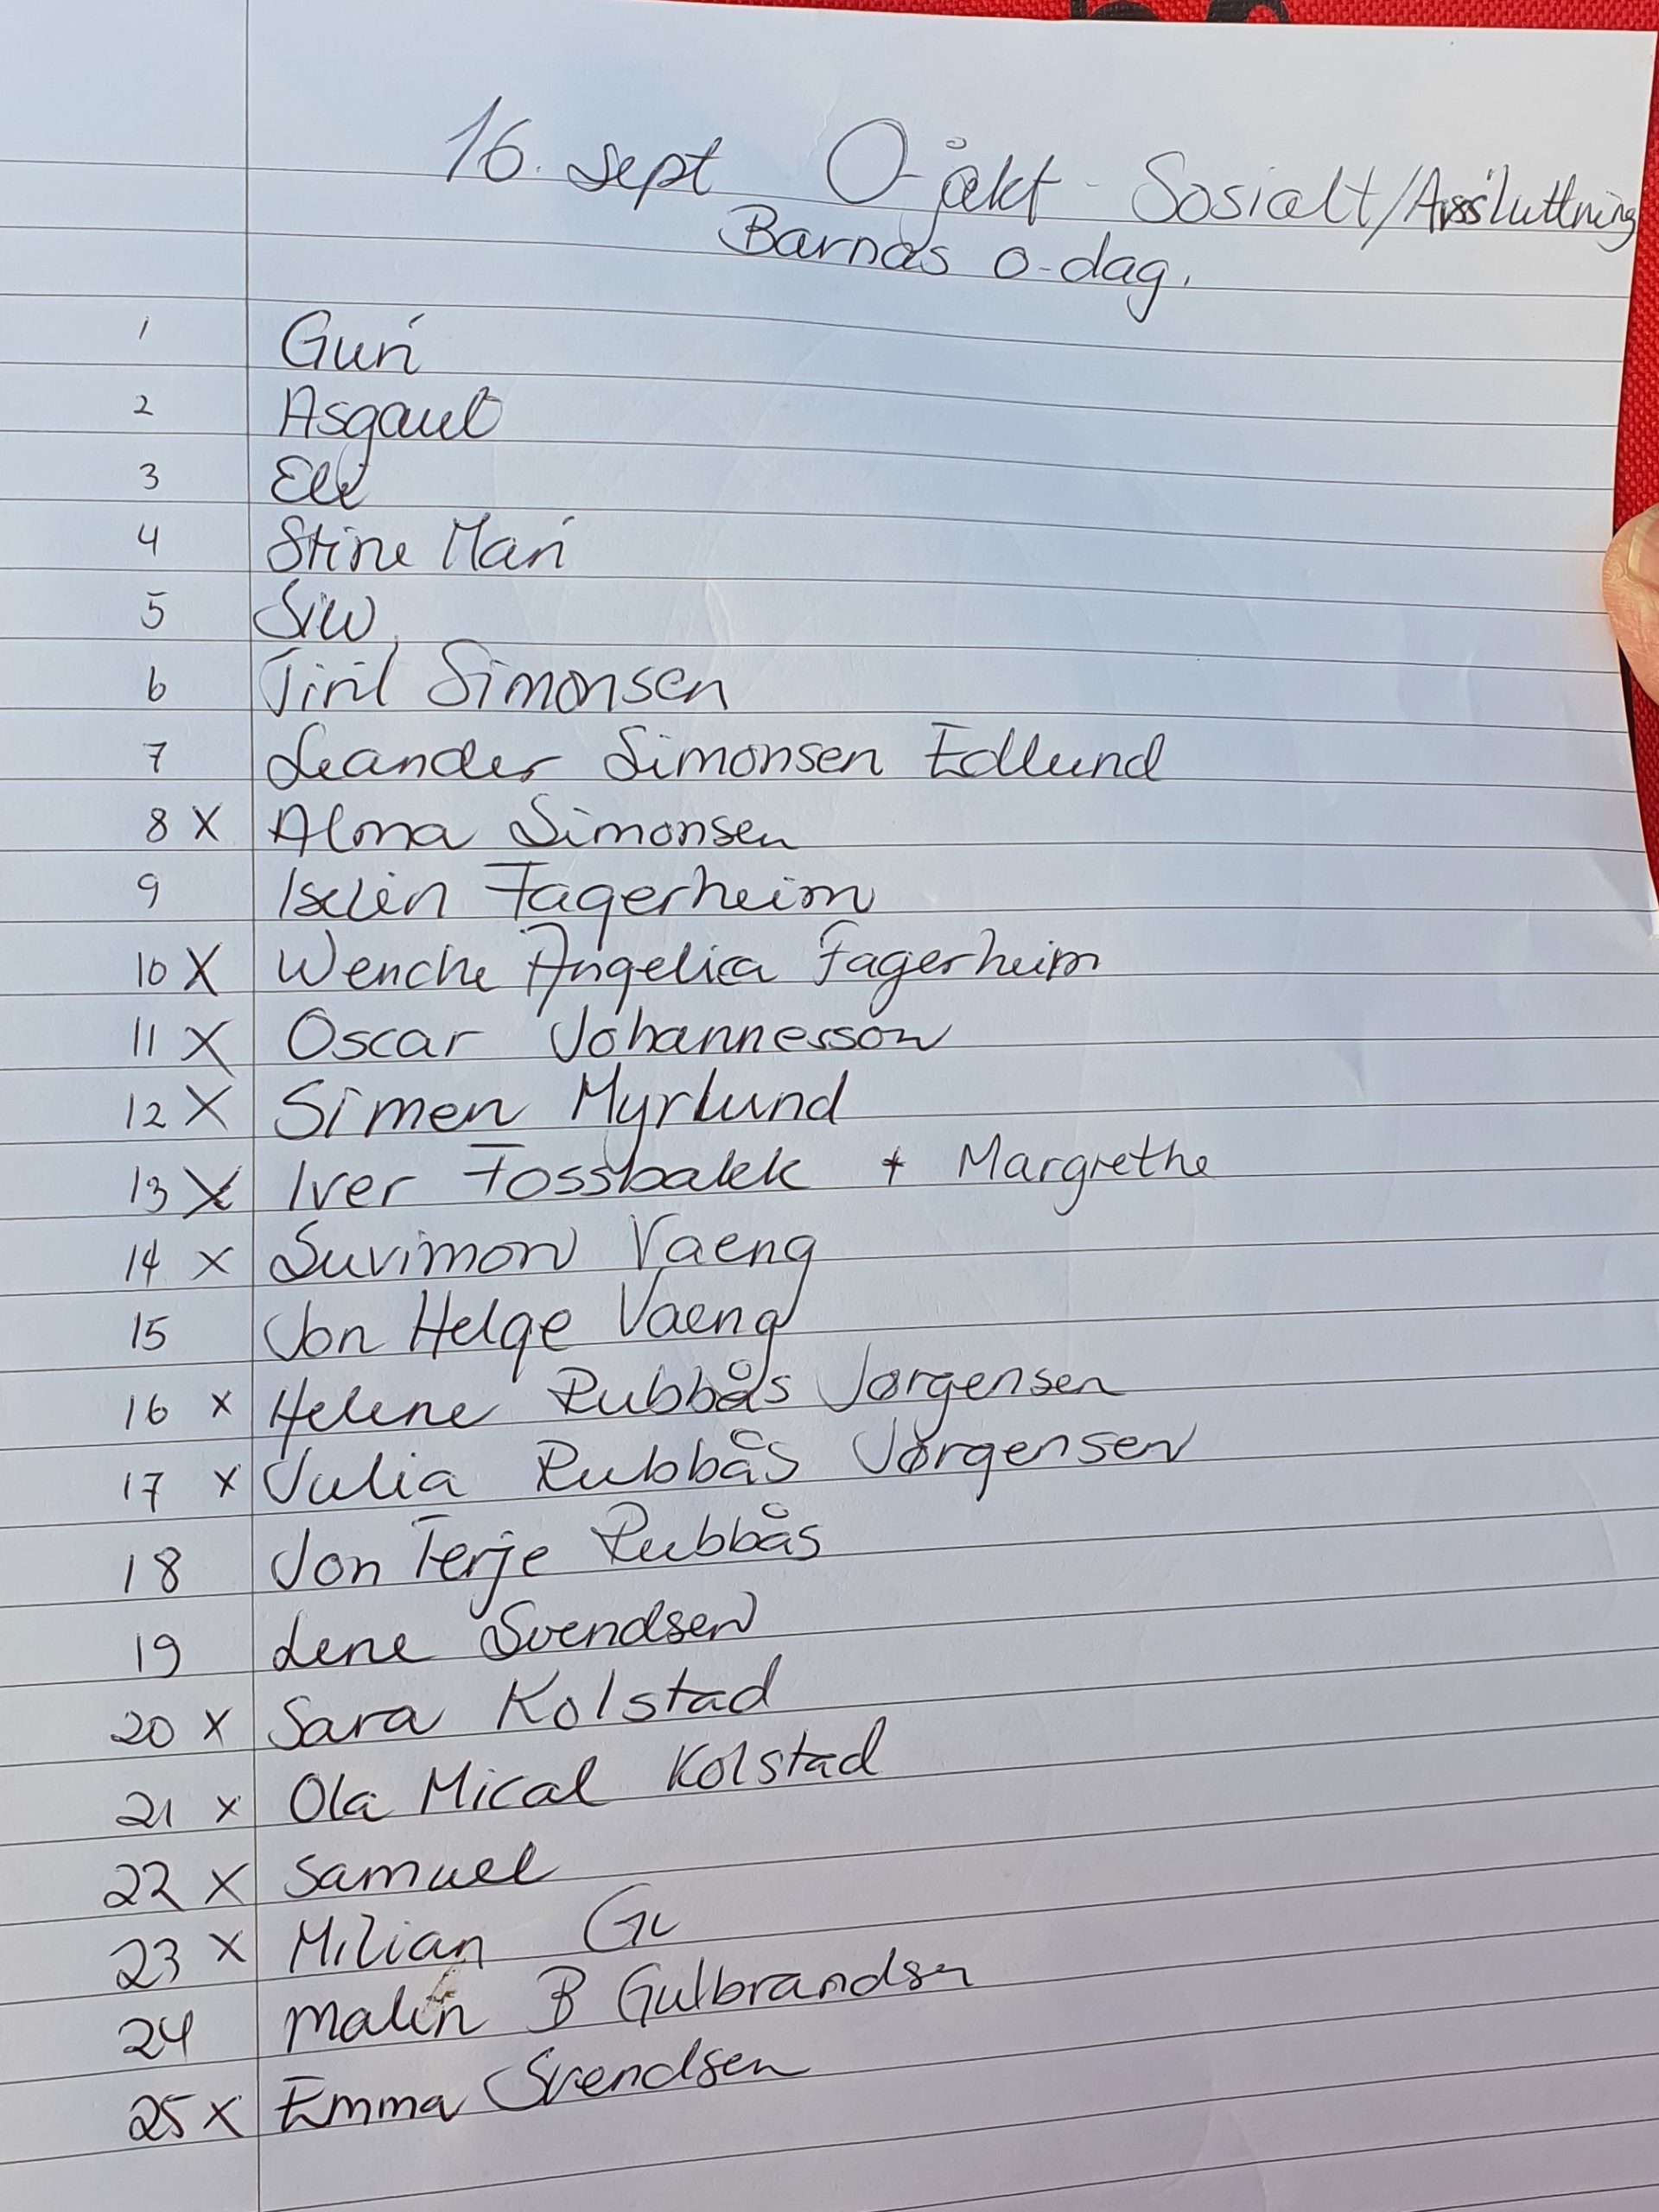 16. sept O-jakt - Sosialt/Avslutning
Barnas o-dag.
1 Guri
2 Asgaut
3 Elle
4 Stine Mari
5 Siw
6 Tiril Simonsen
7 Leander Simonsen Edlund
8 X Alma Simonsen
9 Iselin Fagerheim
10 X Wenche Angelica Fagerheim
11 X Oscar Johannesson
12 X Simen Myrlund
13 X Iver Fossbakk + Margrethe
14 X Suvimon Vaeng
15 Jon Helge Vaeng
16 X Helene Rubbås Jørgensen
17 X Julia Rubbås Jørgensen
18 Jon Terje Rubbås
19 Lene Svendsen
20 X Sara Kolstad
21 X Ola Mical Kolstad
22 X Samuel
23 X Milian G
24 Malin B Gulbrandsen
25 X Emma Svendsen